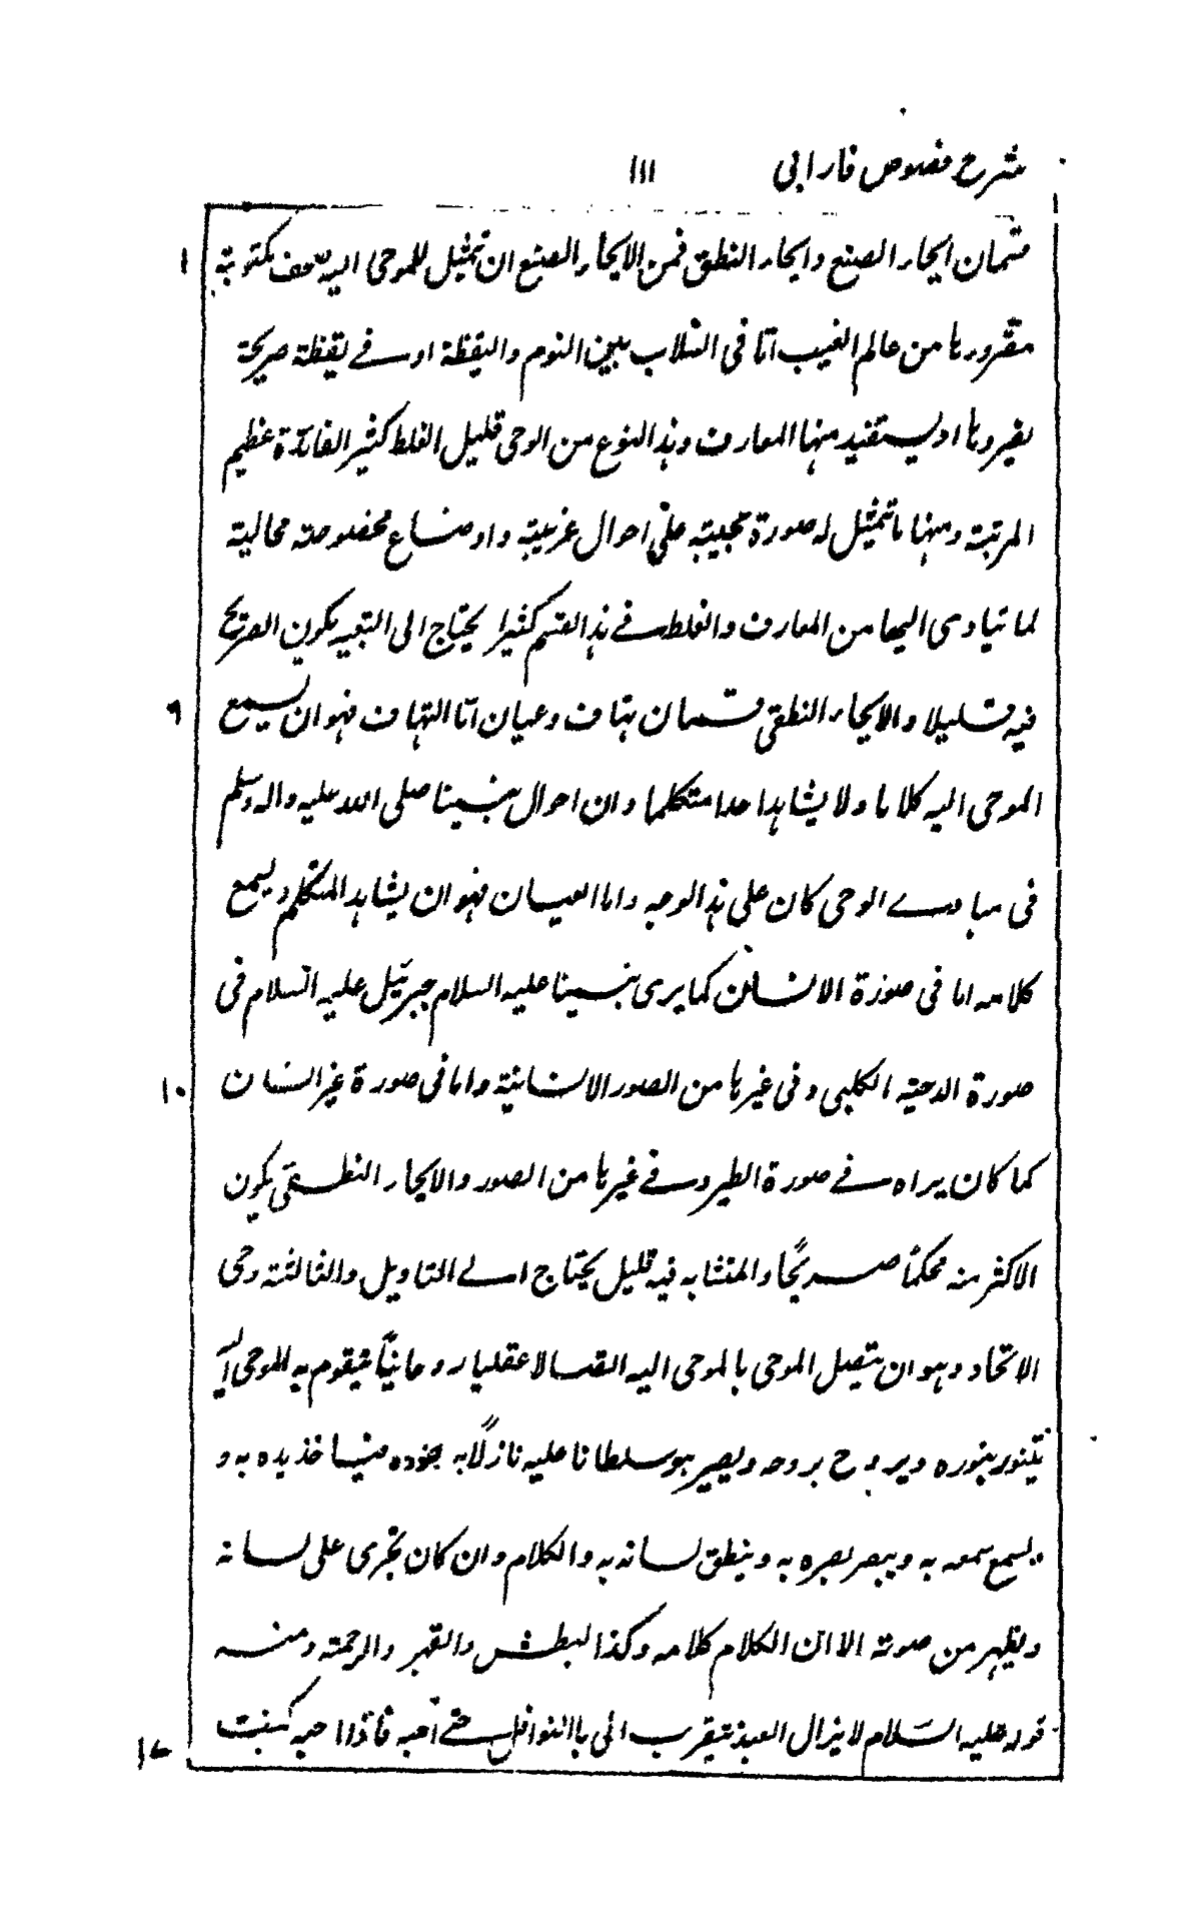 شرح فصوص فارابی ١١١
قسمان ايحاء الصنع وايحاء النطق فمن الايحاء الصنع ان تمثيل للموحى اليه صحف مكتوبة ١
مقرورها من عالم الغيب اما فى انسلاب بين النوم واليقظة او فے يقظة صريحة
يغيرونها او ليستفيد منها المعارف وهذا النوع من الوحى قليل الغلط كثير الفائدة عظيم
المرتبة ومنها ما تمثيل له صورة عجيبة على احوال غريبة واوضاع مخصوصة محالية
لما تيادى اليها من المعارف والغلط فے هذا القسم كثيرا يحتاج الى التعبير يكون الصريح
فيه قليلا والايحاء النطقى قسمان هتاف وعيان اما الهتاف فهو ان يسمع ٦
الموحى اليه كلاما ولا يشاهد احدا متكلما وان احوال نبينا صلى الله عليه واله وسلم
فى مبادے الوحى كان على هذا الوجه واما العيان فهو ان يشاهد المتكلم ويسمع
كلامه اما فى صورة الانسان كما يرى نبينا عليه السلام جبرئيل عليه السلام فى
صورة الدحية الكلبى وفى غيرها من الصور الانسانية واما فى صورة غير انسان ١٠
كما كان يراه فے صورة الطير وفے غيرها من الصور والايحاء النطقى يكون
الاكثر منه محكماً صريحًا والمتشابه فيه قليل يحتاج الے التاويل والثالثة وحى
الاتحاد وهو ان يتصل الموحى بالموحى اليه اتصالا عقليا روحانيًّا فيقوم به الموحى اليه
تيتنور بنوره ويروح بروحه ويصير هو سلطانا عليه نازلًا به بجنوده فياخذ يده به و
يسمع سمعه به ويبصر بصره به وينطق لسانه به والكلام وان كان يجرى على لسانه
ويظهر من صوته الا ان الكلام كلامه وكذا البطش والقهر والرحمة ومنه
قوله عليه السلام لا يزال العبد يتقرب الى باالنوافل حتے احبه فاذا احبه كنت ١٧